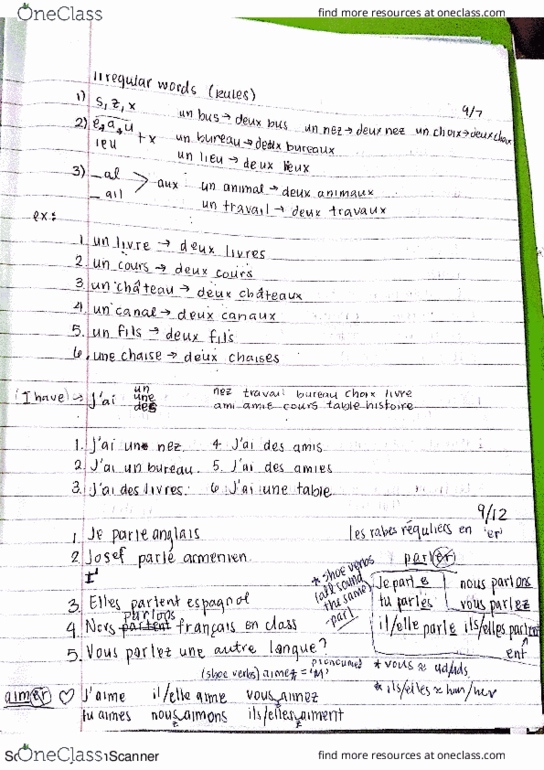 OneClass find more resources at oneclass.com
Irregular words (rules)
9/7
1) s, z, x un bus → deux bus un nez → deux nez un choix → deux choix
2) e, a, u
ieu + x un bureau → deux bureaux
un lieu → deux lieux
3) _al
_ail > aux un animal → deux animaux
un travail → deux travaux
ex:
1. un livre → deux livres
2 un cours → deux cours
3 un château → deux châteaux
4. un canal → deux canaux
5. un fils → deux fils
6. une chaise → deux chaises
(I have) → J'ai un
une
des
nez travail bureau choix livre
ami amie cours table histoire
1. J'ai un nez. 4. J'ai des amis
2 J'ai un bureau. 5. J'ai des amies
3. J'ai des livres. 6 J'ai une table.
9/12
1 Je parle anglais
les rabes réguliers en "er"
2 Josef parle armenien.
parler
* shoe verbs
(all sound
the same)
parl
Je parle nous parlons
tu parles vous parlez
il/elle parle ils/elles parlent
ent
3. Elles parlent espagnol
parlons
4. Nous français en class
5. Vous parlez une autre langue?
(shoe verbs) aimez = "M" pronounced
* vous ≈ ud/uds
* ils/elles ≈ han/her
aimer J'aime il/elle aime vous aimez
z
tu aimes nous aimons ils/elles aiment
z z
OneClass Scanner find more resources at oneclass.com